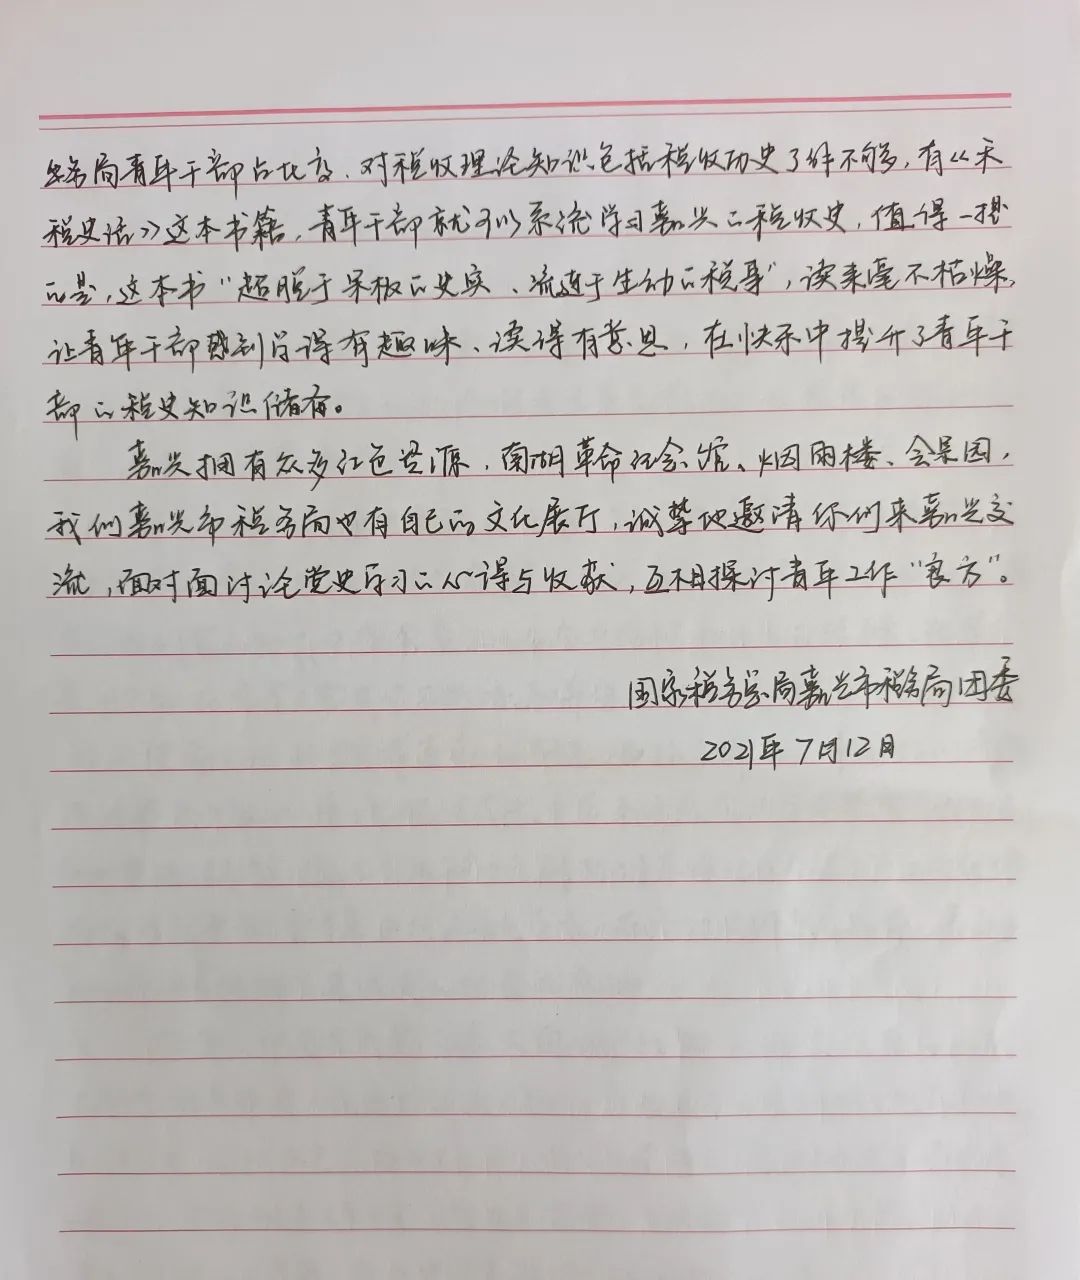 务局青年干部占比高、对税收理论知识包括税收历史了解不够多，有《禾
税史话》这本书籍，青年干部就可以系统学习嘉兴的税收史，值得一提
的是，这本书“超脱于呆板的史实、流连于生动的税事”，读来毫不枯燥，
让青年干部感到学得有趣味、读得有意思，在快乐中提升了青年干
部的税史知识储存。
嘉兴拥有众多红色资源，南湖革命纪念馆、烟雨楼、会景园，
我们嘉兴市税务局也有自己的文化展厅，诚挚地邀请你们来嘉兴交
流，面对面讨论党史学习的心得与收获，互相探讨青年工作“良方”。
国家税务总局嘉兴市税务局团委
2021年7月12日